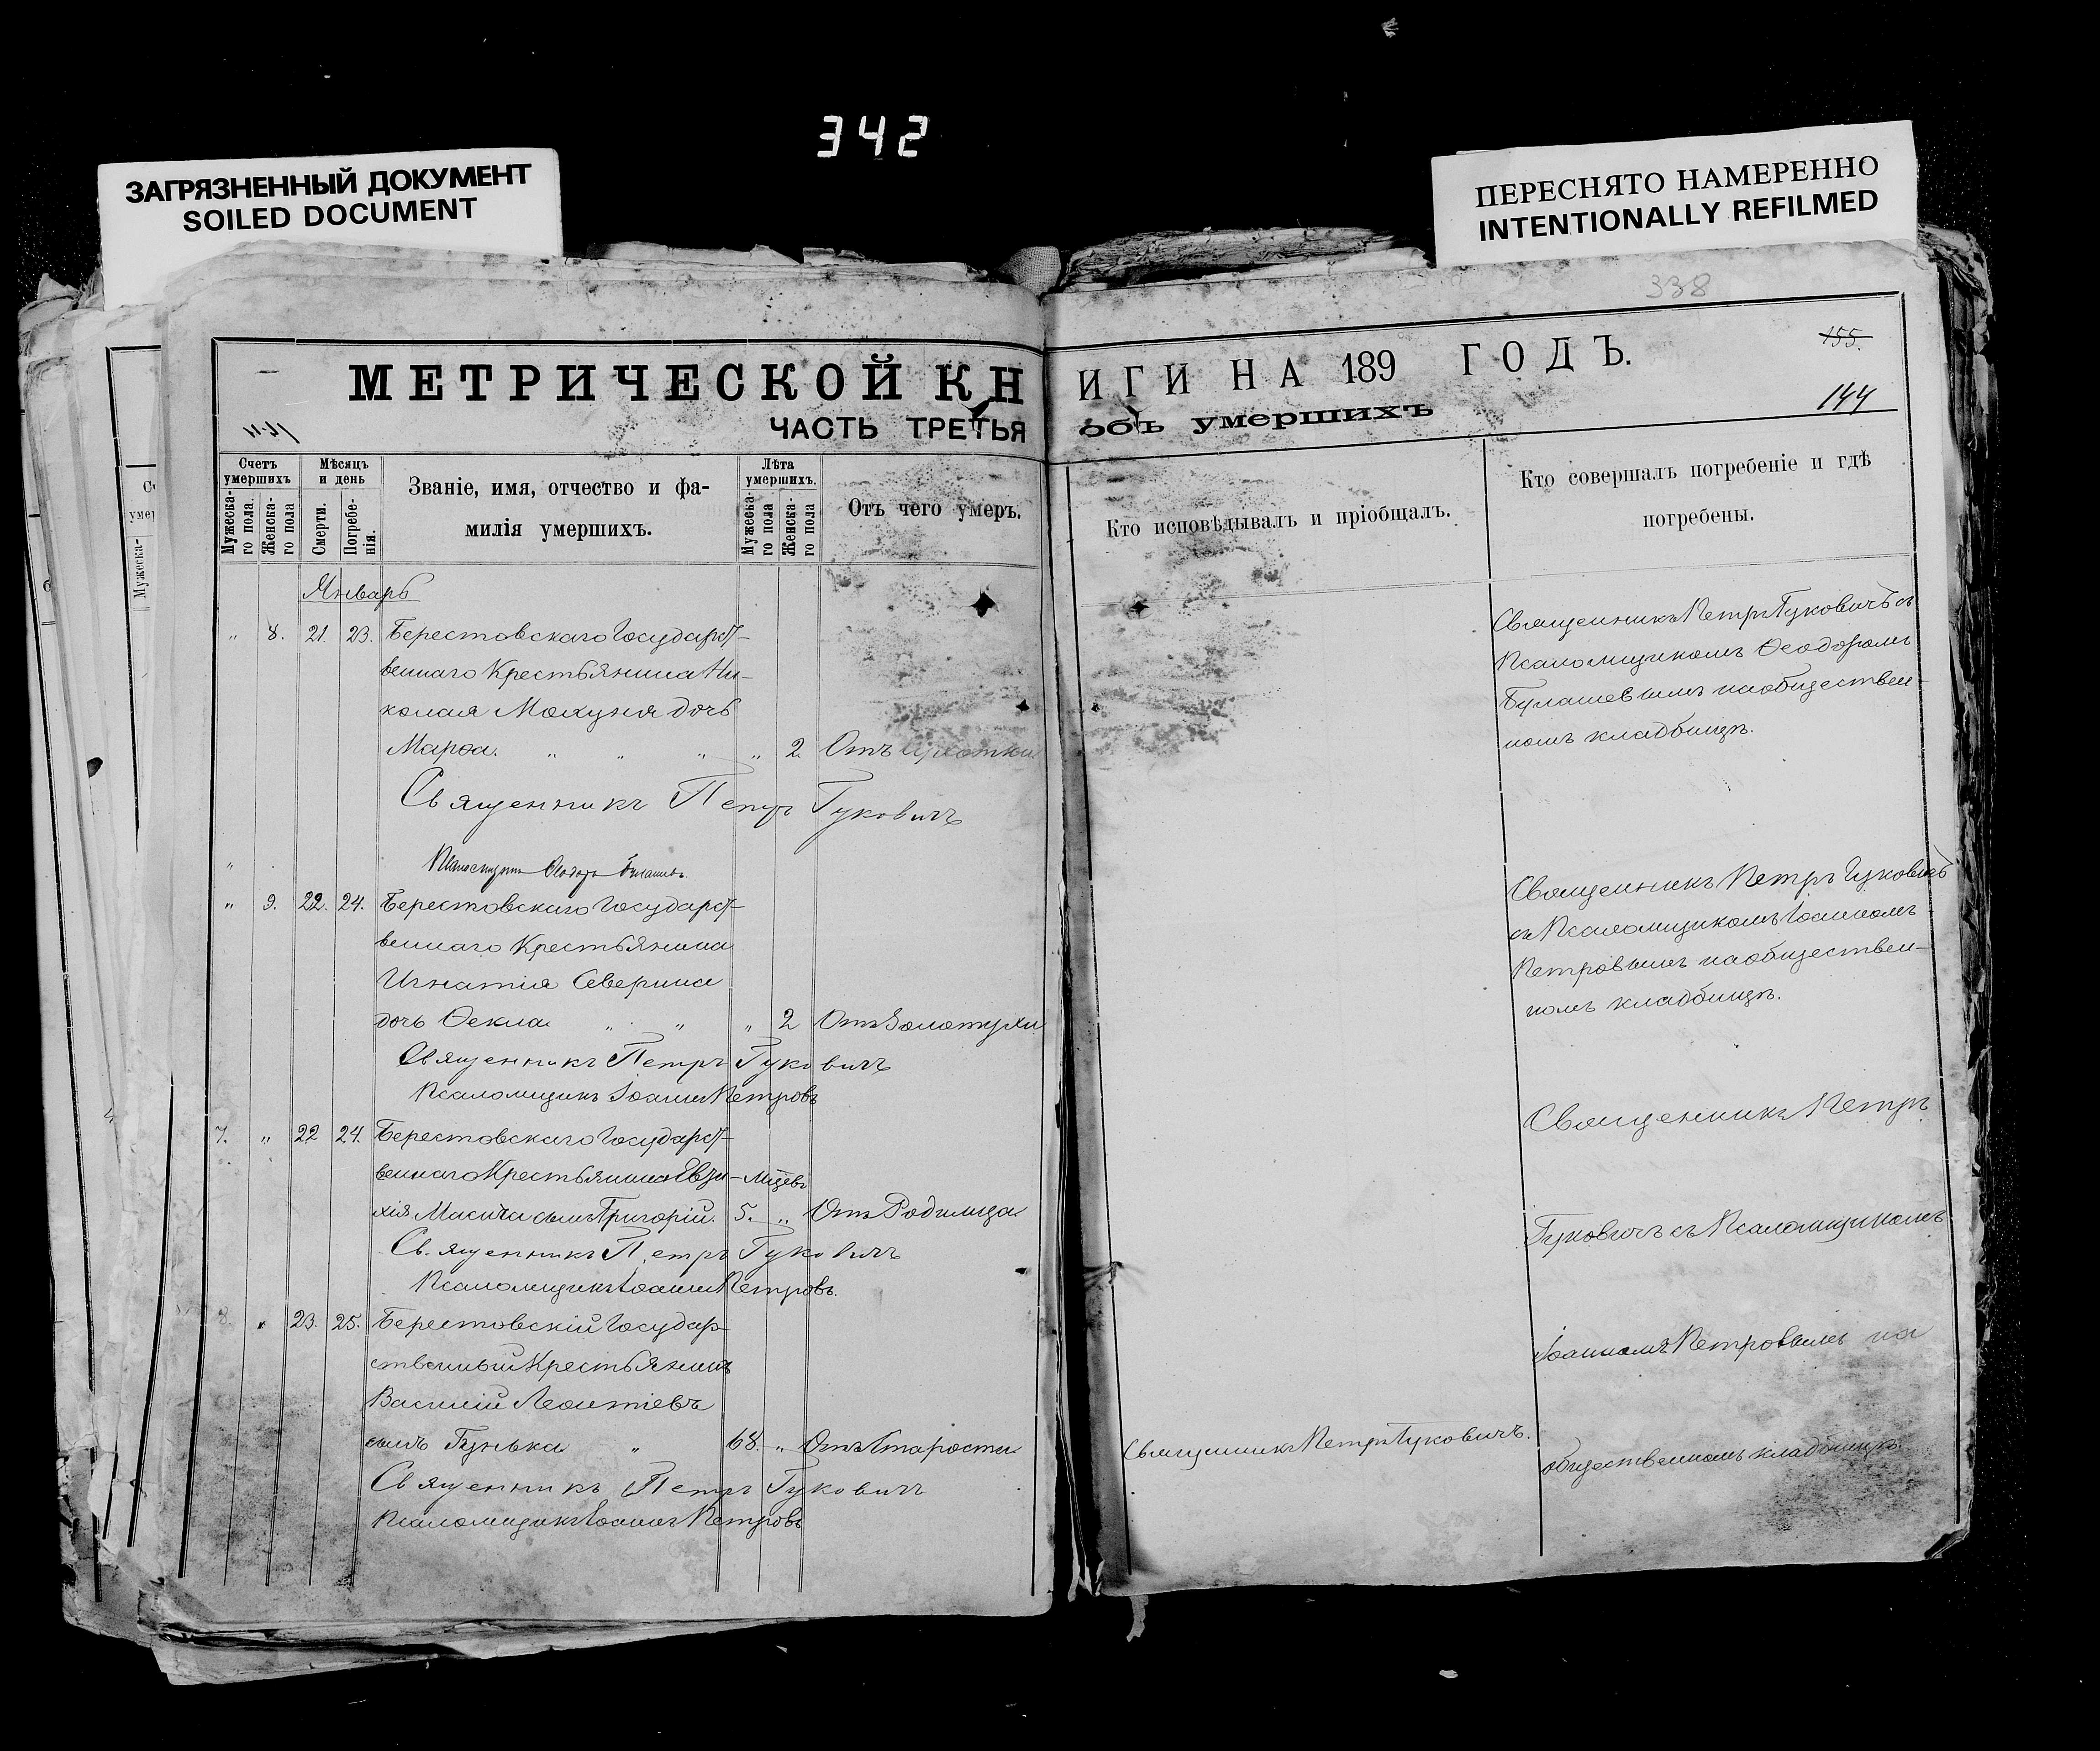 342
ЗАГРЯЗНЕННЫЙ ДОКУМЕНТ
SOILED DOCUMENT
ПЕРЕСНЯТО НАМЕРЕННО
INTENTIONALLY REFILMED
338
МЕТРИЧЕСКОЙ КНИГИ НА 189 ГОДЪ.
155.
144
ЧАСТЬ ТРЕТЬЯ объ умершихъ
Счетъ умершихъ
Мужеска-го пола.
Женска-го пола
Мѣсяцъ и день
Смерти.
Погребе-нія.
Званіе, имя, отчество и фа-
милія умершихъ.
Лѣта умершихъ.
Мужеска-го пола
Женска-го пола
Отъ чего умеръ.
Кто исповѣдывалъ и пріобщалъ.
Кто совершалъ погребеніе и гдѣ
погребены.
Январь
„ 8. 21. 23. Берестовскаго Государст-
веннаго Крестьянина Ни-
колая Мокуня дочь
Марѳа. „ „ „ „ 2 Отъ
Священникъ Петръ Гуковичъ
Священникъ Петръ Гуковичъ съ
Псаломщикомъ Ѳеодоромъ
Булашевымъ на обществен-
номъ кладбищѣ.
Псаломщикъ Ѳеодоръ Булашевъ.
„ 9. 22. 24. Берестовскаго Государст-
веннаго Крестьянина
Игнатія Северина
дочь Ѳекла „ „ „ 2 Отъ Золотухи
Священникъ Петръ Гуковичъ
Псаломщикъ Іоаннъ Петровъ
Священникъ Петръ Гуковичъ
съ Псаломщикомъ Іоанномъ
Петровымъ на обществен-
номъ кладбищѣ.
7. „ 22 24. Берестовскаго Государст-
веннаго Крестьянина Евзи-
хія Масича сынъ Григорій. 5. „ Отъ Родимца
Священникъ Петръ Гуковичъ
Псаломщикъ Іоаннъ Петровъ.
8. „ 23. 25. Берестовскій Государ-
ственный Крестьянинъ
Василій Леонтіевъ
сынъ Гунька „ 68. „ Отъ Старости
Священникъ Петръ Гуковичъ
Псаломщикъ Іоаннъ Петровъ
Священникъ Петръ Гуковичъ.
Священникъ Петръ
Гуковичъ съ Псаломщикомъ
Іоанномъ Петровымъ на
общественномъ кладбищѣ.